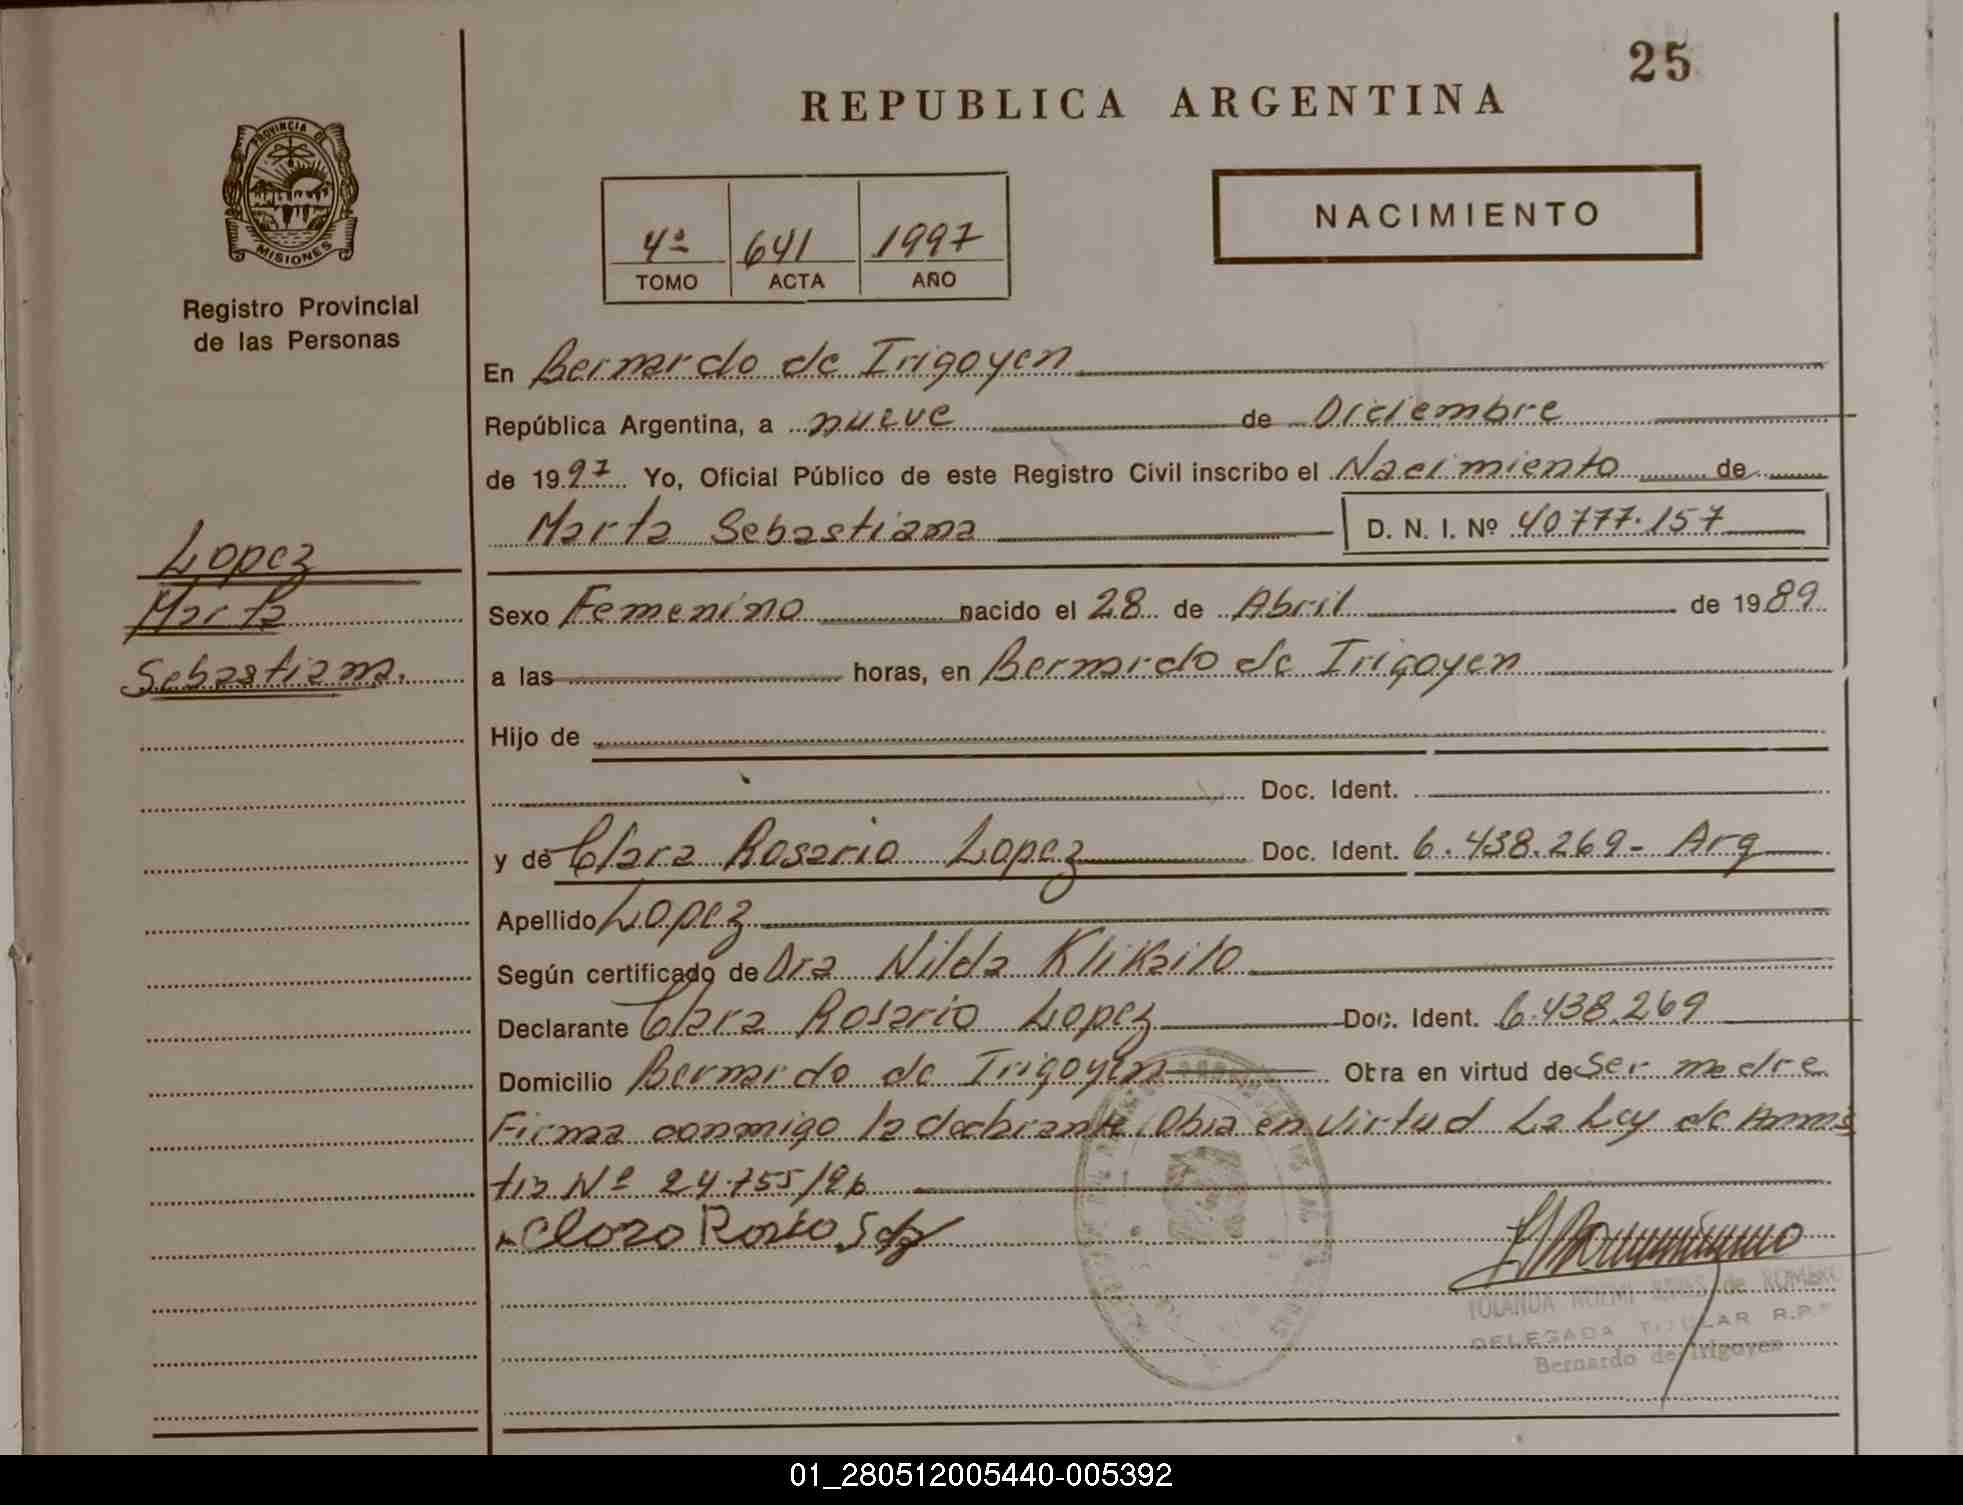 25
REPUBLICA ARGENTINA
PROVINCIA DE
MISIONES
Registro Provincial
de las Personas
4ª 641 1997
TOMO ACTA AÑO
NACIMIENTO
En Bernardo de Irigoyen
República Argentina, a nueve de Diciembre
de 1997 Yo, Oficial Público de este Registro Civil inscribo el Nacimiento de
Marta Sebastiana D. N. I. Nº 40777.157
Lopez
Marta
Sebastiana.
Sexo Femenino nacido el 28 de Abril de 1989
a las horas, en Bernardo de Irigoyen
Hijo de
Doc. Ident.
y de Clara Rosario Lopez Doc. Ident. 6.438.269- Arg
Apellido Lopez
Según certificado de Dra Nilda Klikailo
Declarante Clara Rosario Lopez Doc. Ident. 6.438.269
Domicilio Bernardo de Irigoyen Obra en virtud de Ser madre
Firma conmigo la declarante. Obra en virtud La Ley de Amnis
tia Nº 24.755/96
YOLANDA NOEMI de
DELEGADA TITULAR R.P.
Bernardo de Irigoyen
01_280512005440-005392